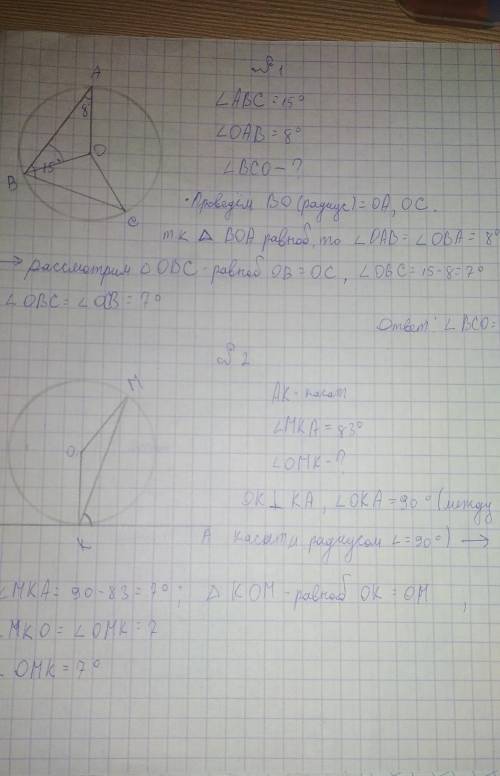 №1
A
8
O
15°
B
C
∠ABC = 15°
∠OAB = 8°
∠BCO - ?
· Проведём BO (радиус) = OA, OC.
тк △ BOA равноб, то ∠OAB = ∠OBA = 8°
→ рассмотрим △ OBC - равноб OB = OC, ∠OBC = 15-8 = 7°
∠OBC = ∠OCB = 7°
Ответ: ∠BCO =
№2
M
O
K
A
AK - касат
∠MKA = 83°
∠OMK - ?
OK ⊥ KA, ∠OKA = 90° (между
касат и радиусом ∠ = 90°) →
∠MKA = 90 - 83 = 7° ; △ KOM - равноб OK = OM ,
∠MKO = ∠OMK = 7
∠ OMK = 7°